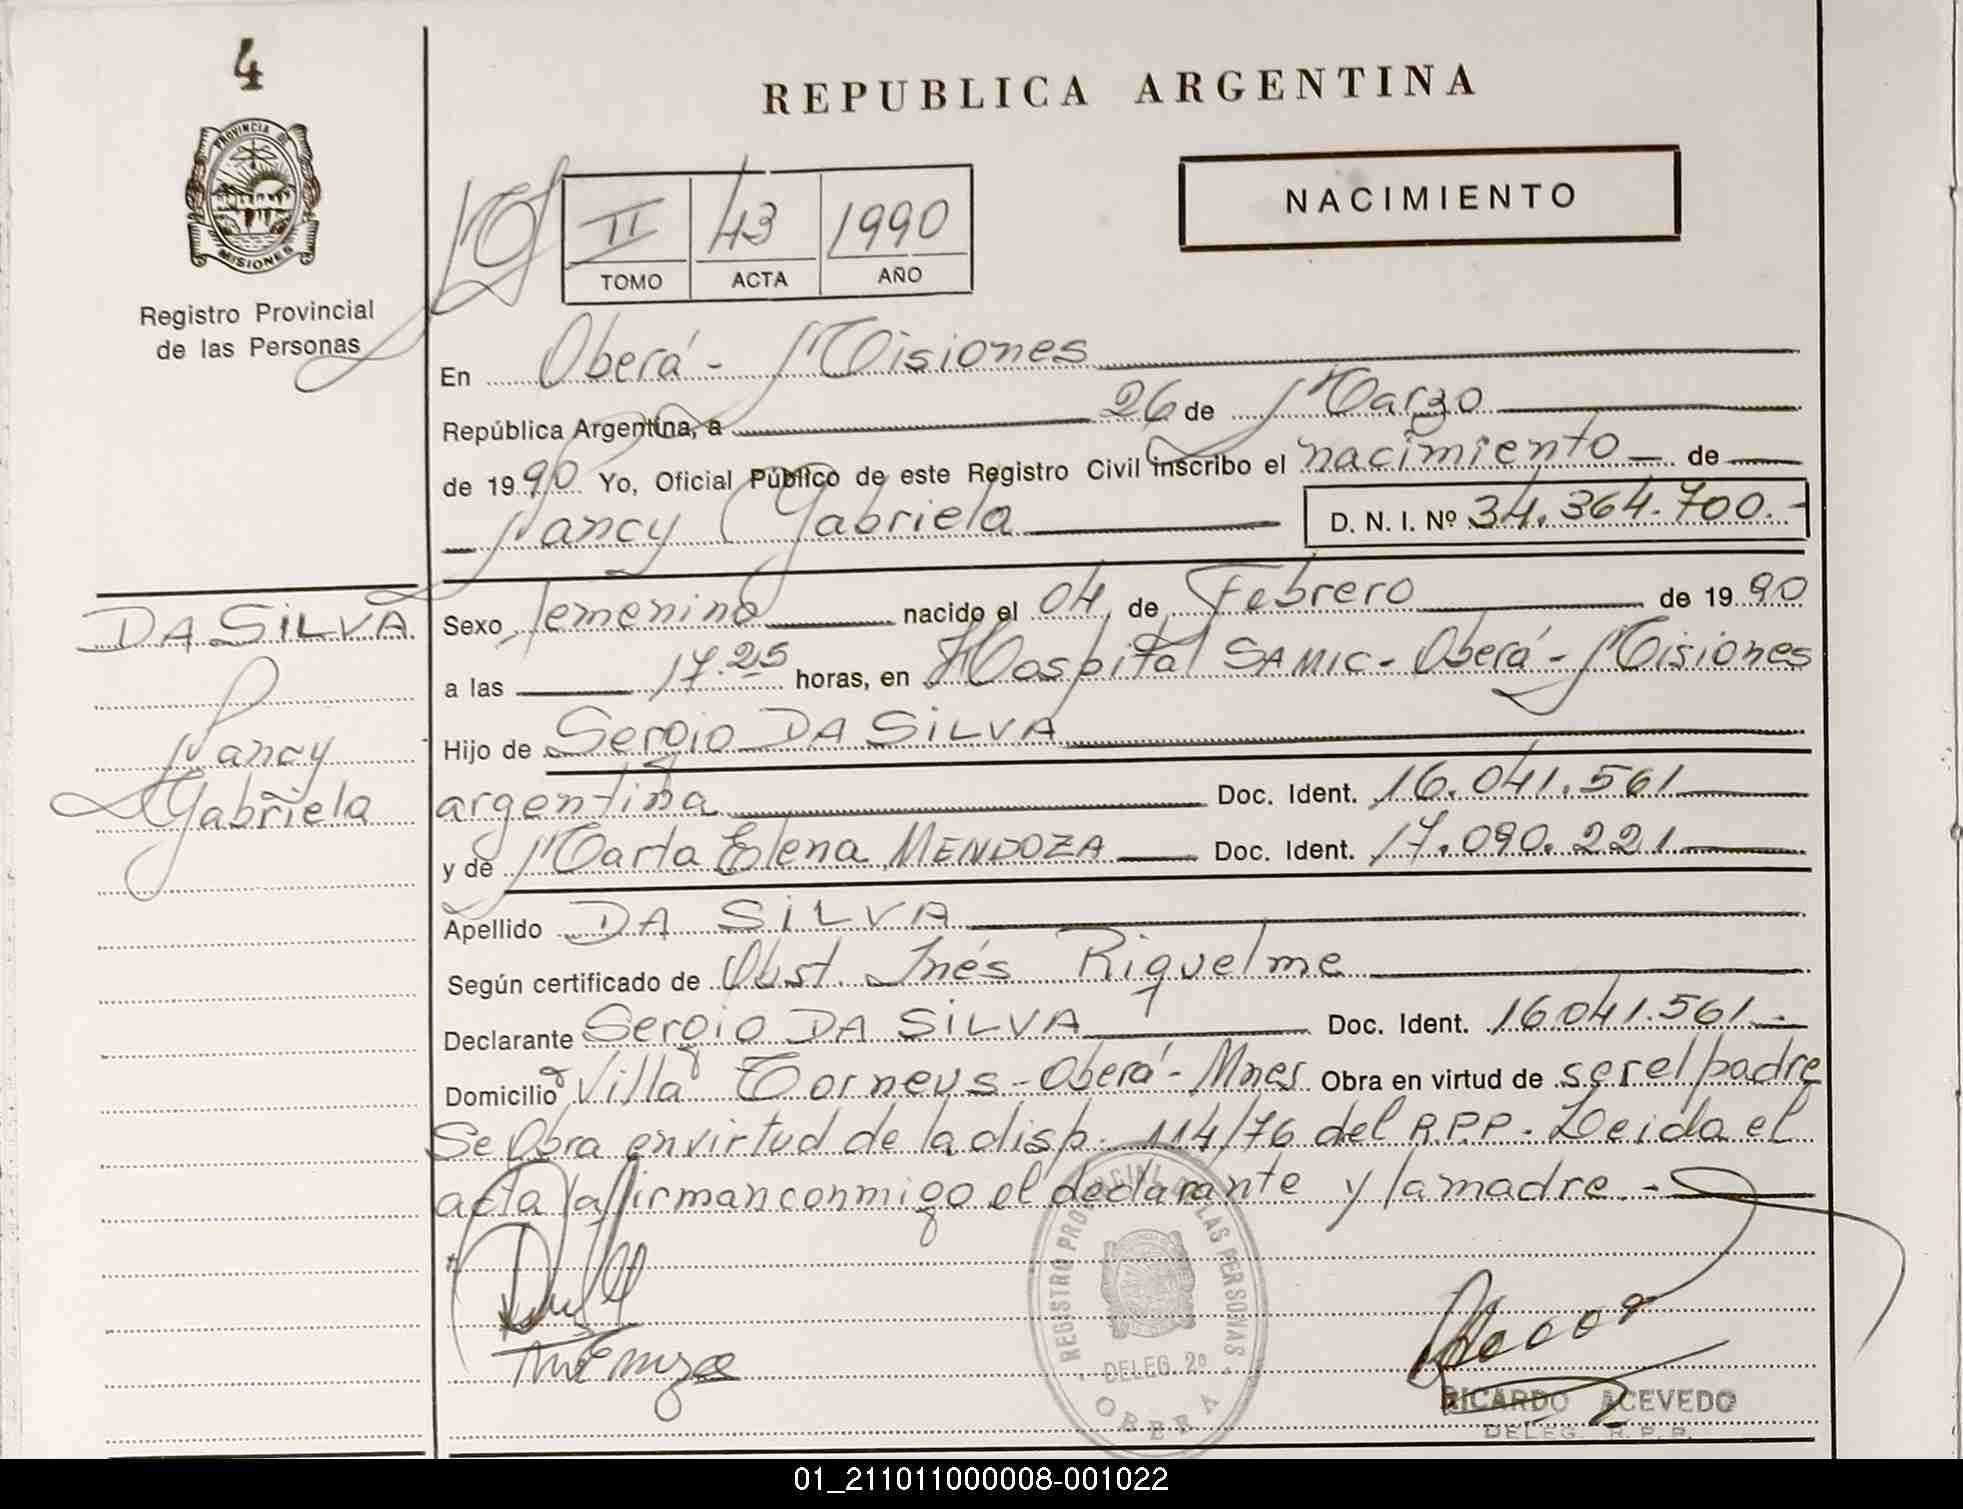 4
REPUBLICA ARGENTINA
PROVINCIA DE
MISIONES
Registro Provincial
de las Personas
NACIMIENTO
II 43 1990
TOMO ACTA AÑO
En Oberá - Misiones
República Argentina, a 26 de Marzo
de 1990 Yo, Oficial Público de este Registro Civil inscribo el nacimiento de
Nancy Gabriela D. N. I. Nº 34.364.700.-
DA SILVA
Nancy
Gabriela
Sexo femenino nacido el 04 de Febrero de 1990
a las 17.25 horas, en Hospital SAMIC - Oberá - Misiones
Hijo de Sergio DA SILVA
argentina Doc. Ident. 16.041.561
y de Marta Elena MENDOZA Doc. Ident. 17.090.221
Apellido DA SILVA
Según certificado de Obst. Inés Riquelme
Declarante Sergio DA SILVA Doc. Ident. 16.041.561.-
Domicilio Villa Torneus - Oberá - Mnes Obra en virtud de ser el padre
Se Obra en virtud de la disp. 114/76 del R.P.P. - Leida el
acta firman conmigo el declarante y la madre. -
REGISTRO PROVINCIAL DE LAS PERSONAS
DELEG. 2º
OBERA
RICARDO ACEVEDO
DELEG. R. P. P.
01_211011000008-001022